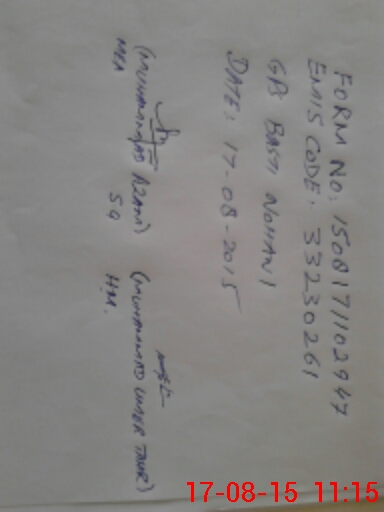 FORM NO: 1508171102947
EMIS CODE: 33230261
GPS BASTI NOHANI
DATE: 17-08-2015
(MUHAMMAD AZAM)
MEA 59
(MUHAMMAD UMER TAHIR)
H.M.
17-08-15 11:15